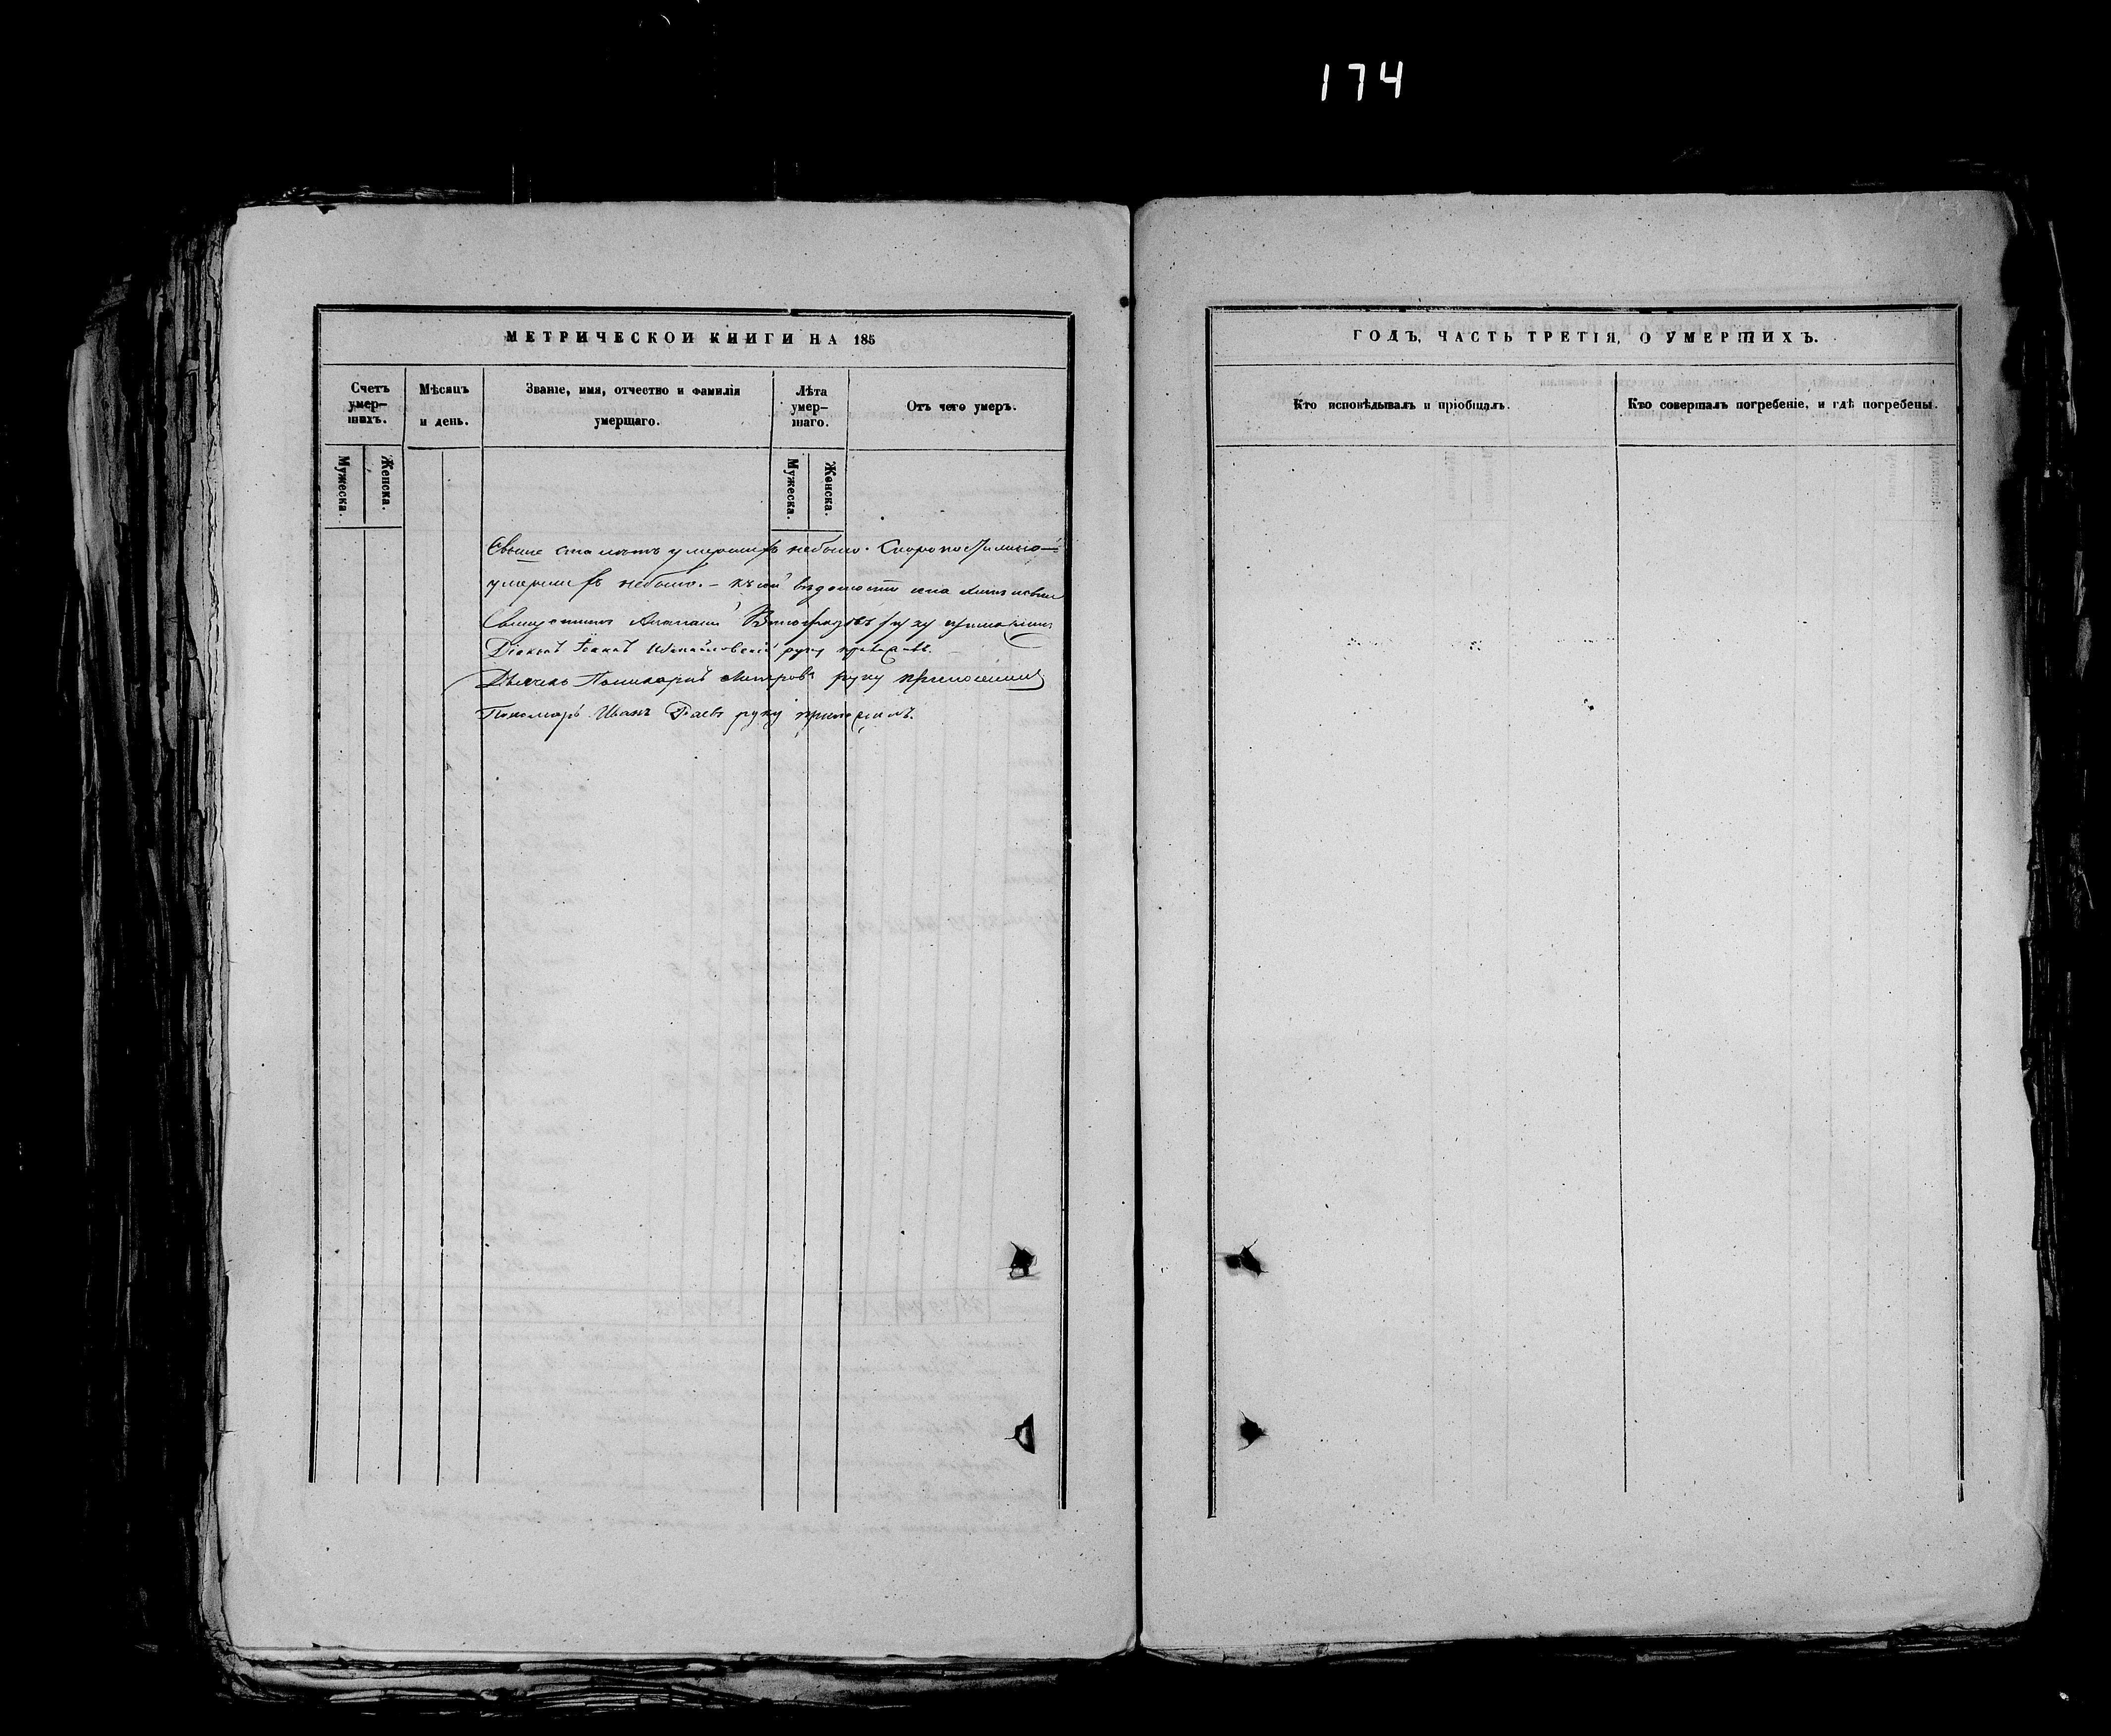 174
МЕТРИЧЕСКОЙ КНИГИ НА 185
Счетъ умер-шихъ.
Мѣсяцъ и день.
Званіе, имя, отчество и фамилія умершаго.
Лѣта умер-шаго.
Отъ чего умеръ.
Мужеска.
Женска.
Мужеска.
Женска.
Свыше ста лѣтъ умершихъ небыло. Скоропостижно
умершихъ небыло. – къ сей вѣдомости
Священникъ Виноградовъ руку приложилъ
Діаконъ Іоаннъ руку приложилъ.
Дьячекъ Поликарпъ руку приложилъ
Пономарь Иванъ руку приложилъ.
ГОДЪ, ЧАСТЬ ТРЕТІЯ, О УМЕРШИХЪ.
Кто исповѣдывалъ и пріобщалъ.
Кто совершалъ погребеніе, и гдѣ погребены.